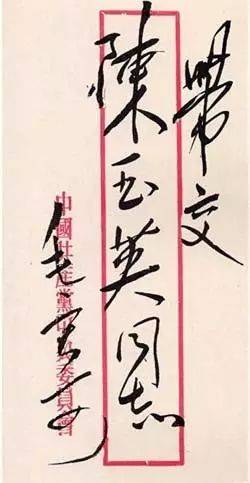 帶交
陳玉英同志
中國共產黨中央委員會
毛寄